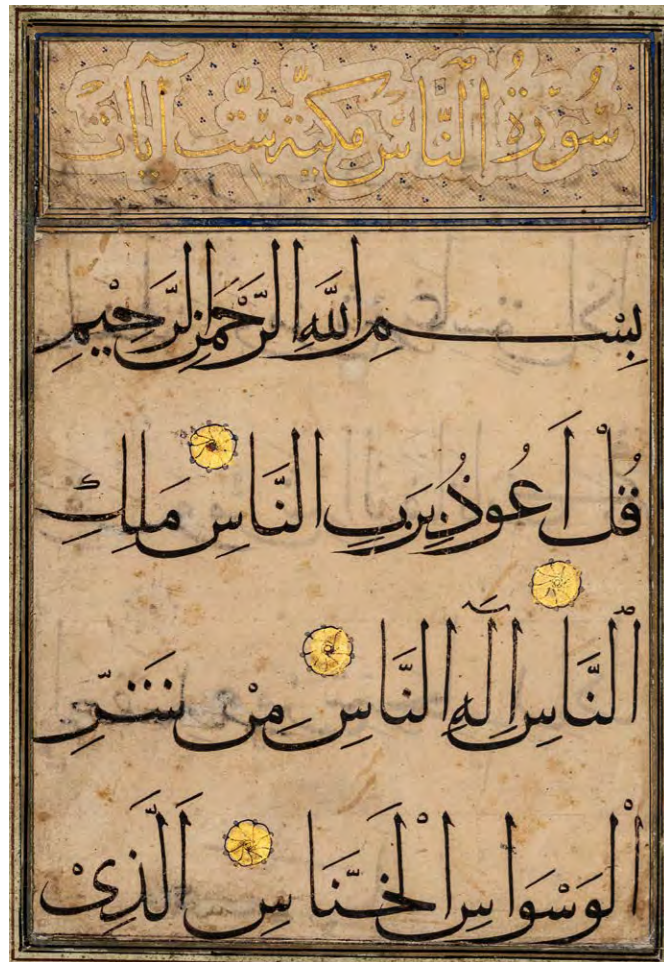 سُوْرَةُ النَّاسِ مَكِّيَّةٌ سِتُّ آيَاتٍ
بِسْمِ اللَّهِ الرَّحْمَنِ الرَّحِيْمِ
قُلْ اَعُوذُ بِرَبِّ النَّاسِ مَلِكِ
النَّاسِ اِلَٰهِ النَّاسِ مِنْ شَرِّ
الْوَسْوَاسِ الْخَنَّاسِ الَّذِىْ